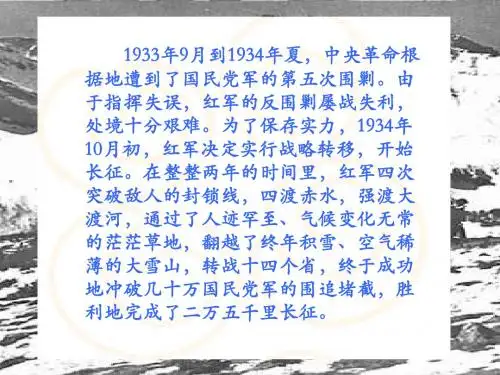 1933年9月到1934年夏，中央革命根
据地遭到了国民党军的第五次围剿。由
于指挥失误，红军的反围剿屡战失利，
处境十分艰难。为了保存实力，1934年
10月初，红军决定实行战略转移，开始
长征。在整整两年的时间里，红军四次
突破敌人的封锁线，四渡赤水，强渡大
渡河，通过了人迹罕至、气候变化无常
的茫茫草地，翻越了终年积雪、空气稀
薄的大雪山，转战十四个省，终于成功
地冲破几十万国民党军的围追堵截，胜
利地完成了二万五千里长征。